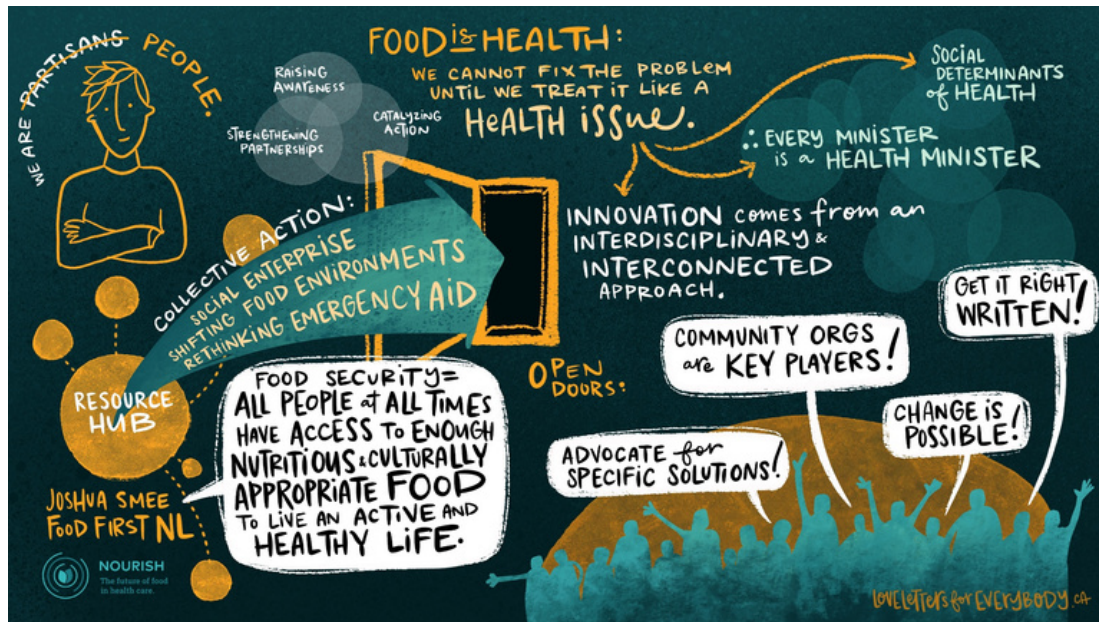 WE ARE PARTISANS PEOPLE.
RAISING
AWARENESS
STRENGTHENING
PARTNERSHIPS
CATALYZING
ACTION
FOOD is HEALTH:
WE CANNOT FIX THE PROBLEM
UNTIL WE TREAT IT LIKE A
HEALTH ISSUE.
SOCIAL
DETERMINANTS
of HEALTH
∴ EVERY MINISTER
is a HEALTH MINISTER
INNOVATION comes from an
INTERDISCIPLINARY &
INTERCONNECTED
APPROACH.
COLLECTIVE ACTION:
SOCIAL ENTERPRISE
SHIFTING FOOD ENVIRONMENTS
RETHINKING EMERGENCY AID
RESOURCE
HUB
JOSHUA SMEE
FOOD FIRST NL
FOOD SECURITY =
ALL PEOPLE at ALL TIMES
HAVE ACCESS to ENOUGH
NUTRITIOUS & CULTURALLY
APPROPRIATE FOOD
TO LIVE AN ACTIVE AND
HEALTHY LIFE.
OPEN
DOORS:
ADVOCATE for
SPECIFIC SOLUTIONS!
COMMUNITY ORGS
are KEY PLAYERS!
CHANGE is
POSSIBLE!
GET IT RIGHT
WRITTEN!
NOURISH
The future of food
in health care.
LOVELETTERSforEVERYBODY.CA